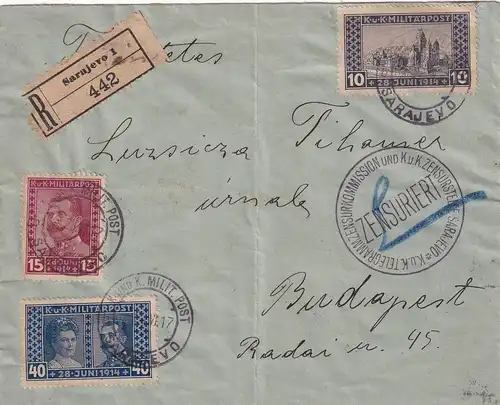 K.u.K. MILITÄRPOST
10 10
28·JUNI 1914
SARAJEVO
Sarajevo 1
R 442
Tihauser
Luzsicza
úrnak
K.u.K. TELEGRAMMZENSURKOMMISSION UND K.u.K. ZENSURSTELLE SARAJEVO
ZENSURIERT
K·u·K·MILITÄRPOST
15 15
28·JUNI
1914
MILIT. POST
Budapest
Radai u. 45.
K·u·K·MILITÄRPOST
40 40
28·JUNI 1914
UND K. MILIT. POST
17
SARAJEVO